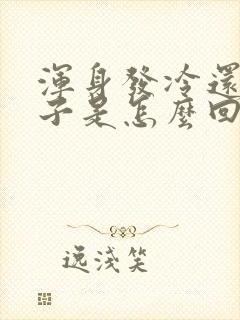 渾身發冷還
子是怎麼回
逸淺笑